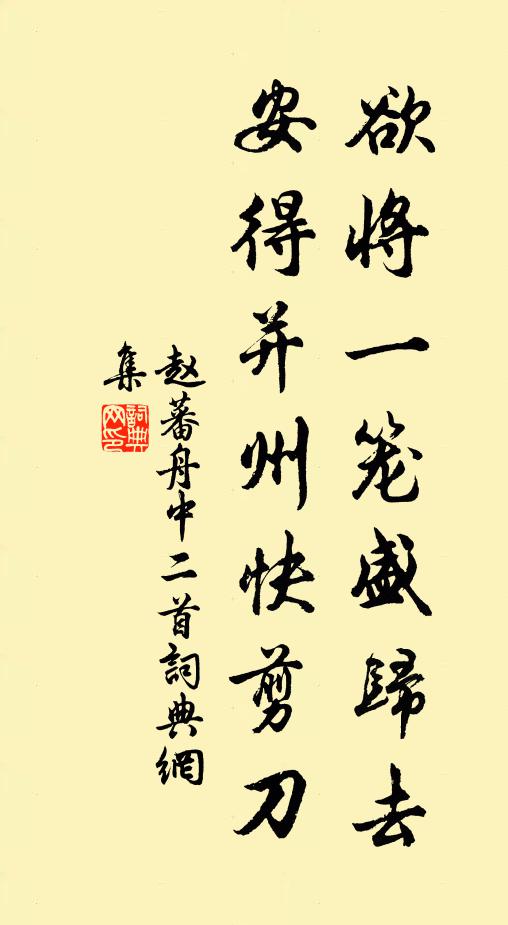 欲将一笼盛歸去
安得并州快剪刀
赵蕃舟中二首詞典網
集
詞典
网印